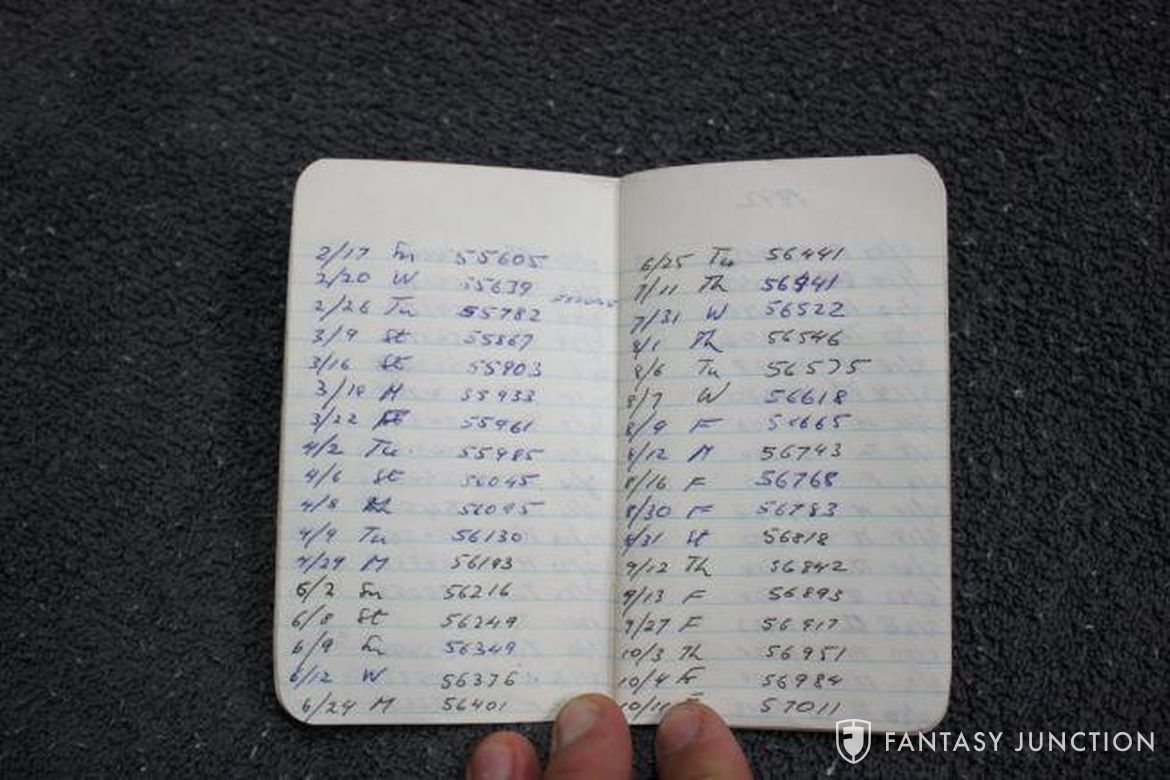 2/17 Sn 55605
2/20 W 55639
2/26 Tu 55782
3/9 St 55867
3/16 St 55903
3/18 M 55933
3/22 55961
4/2 Tu. 55985
4/6 St 56045
4/8 M 56095
4/9 Tu 56130
4/29 M 56193
6/2 Sn 56216
6/8 St 56249
6/9 Sn 56349
6/12 W 56376
6/24 M 56401
6/25 Tu 56441
7/11 Th
7/31 W 56522
8/1 Th 56546
8/6 Tu 56575
8/7 W 56618
8/9 F 56665
8/12 M 56743
8/16 F 56768
8/30 F 56783
8/31 St 56818
9/12 Th 56842
9/13 F 56893
9/27 F 56917
10/3 Th 56951
10/4 Fr 56984
57011
FANTASY JUNCTION